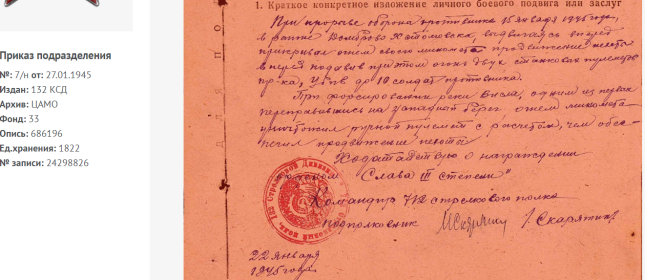 Приказ подразделения
№: 7/н от: 27.01.1945
Издан: 132 КСД
Архив: ЦАМО
Фонд: 33
Опись: 686196
Ед.хранения: 1822
№ записи: 24298826
I. Краткое конкретное изложение личного боевого подвига или заслуг
При прорыве обороны противника 15 января 1945 года,
в районе выдвигаясь вперед
прикрывал огнем своего миномета продвижение пехоты
вперед подавив при этом огонь двух станковых пулеметов
пр-ка, убив до 10 солдат противника.
При форсировании реки Висла, одним из первых
переправившись на западный берег огнем миномета
уничтожил ручной пулемет с расчетом, чем обес-
печил продвижение пехоты
Ходатайствую о награждении
орденом "Слава III степени"
Командир 712 стрелкового полка
Подполковник /Скарятин/
22 января
1945 года.